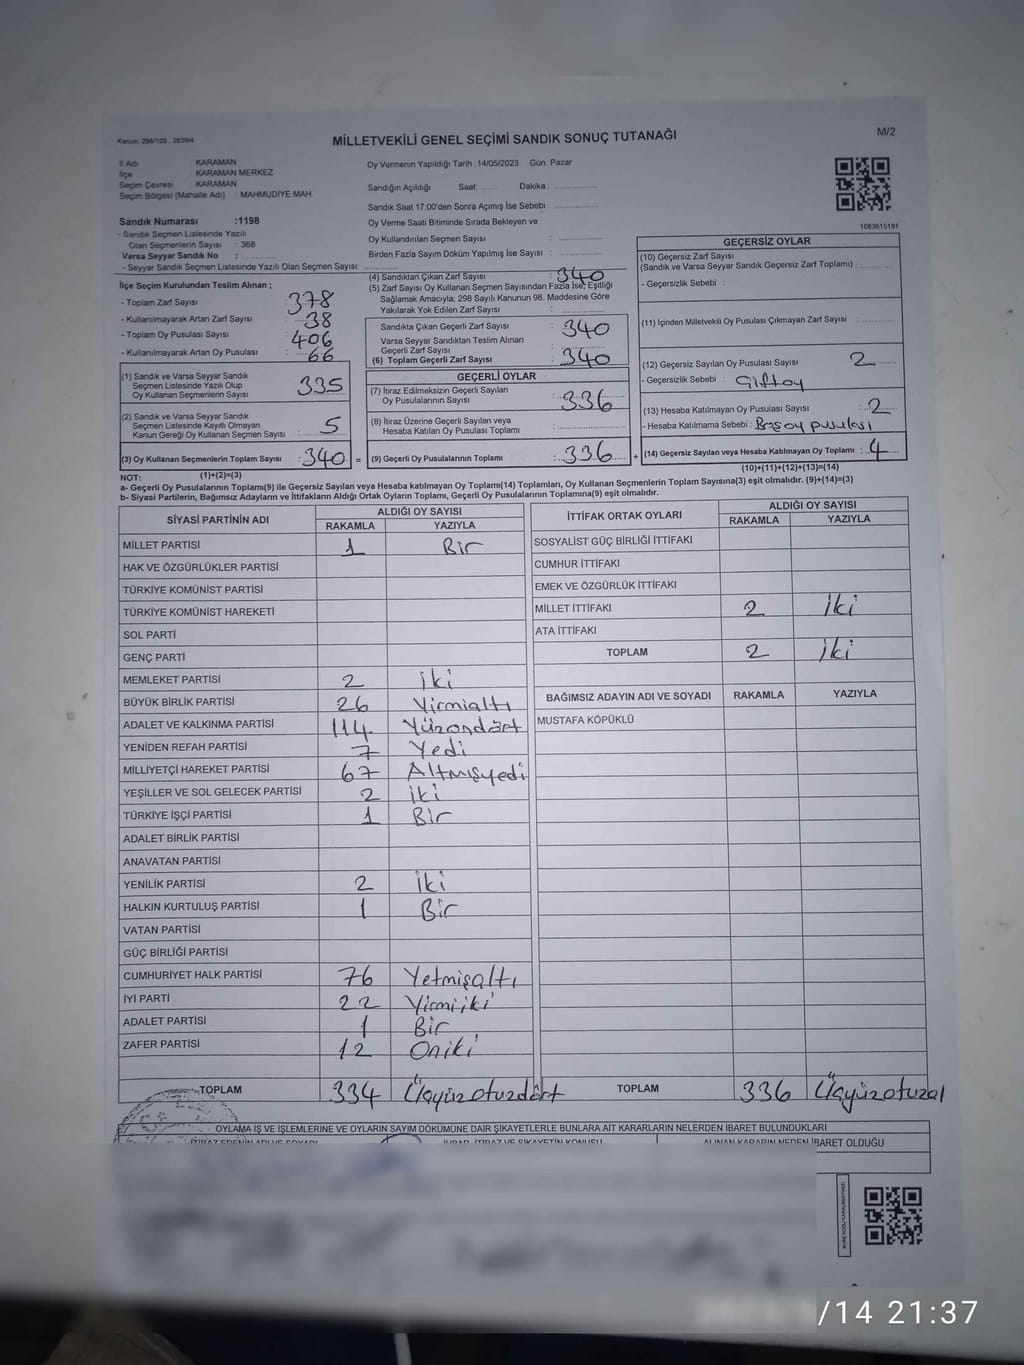 Kanun: 298/105 , 2839/4
MİLLETVEKİLİ GENEL SEÇİMİ SANDIK SONUÇ TUTANAĞI
M/2
İl Adı : KARAMAN
İlçe : KARAMAN MERKEZ
Seçim Çevresi : KARAMAN
Seçim Bölgesi (Mahalle Adı) : MAHMUDİYE MAH.
Oy Vermenin Yapıldığı Tarih : 14/05/2023 Gün: Pazar
Sandığın Açıldığı Saat: Dakika :
Sandık Saat 17:00'den Sonra Açımış İse Sebebi :
Oy Verme Saati Bitiminde Sırada Bekleyen ve
Oy Kullandırılan Seçmen Sayısı :
Birden Fazla Sayım Döküm Yapılmış İse Sayısı :
1083615191
Sandık Numarası :1198
- Sandık Seçmen Listesinde Yazılı
Olan Seçmenlerin Sayısı : 368
Varsa Seyyar Sandık No :
- Seyyar Sandık Seçmen Listesinde Yazılı Olan Seçmen Sayısı:
İlçe Seçim Kurulundan Teslim Alınan ;
- Toplam Zarf Sayısı : 378
- Kullanılmayarak Artan Zarf Sayısı : 38
- Toplam Oy Pusulası Sayısı : 406
- Kullanılmayarak Artan Oy Pusulası : 66
(1) Sandık ve Varsa Seyyar Sandık
Seçmen Listesinde Yazılı Olup
Oy Kullanan Seçmenlerin Sayısı : 335
(2) Sandık ve Varsa Seyyar Sandık
Seçmen Listesinde Kayıtlı Olmayan
Kanun Gereği Oy Kullanan Seçmen Sayısı : 5
(3) Oy Kullanan Seçmenlerin Toplam Sayısı : 340 =
(4) Sandıktan Çıkan Zarf Sayısı : 340
(5) Zarf Sayısı Oy Kullanan Seçmen Sayısından Fazla İse; Eşitliği
Sağlamak Amacıyla, 298 Sayılı Kanunun 98. Maddesine Göre
Yakılarak Yok Edilen Zarf Sayısı :
Sandıkta Çıkan Geçerli Zarf Sayısı : 340
Varsa Seyyar Sandıktan Teslim Alınan
Geçerli Zarf Sayısı :
(6) Toplam Geçerli Zarf Sayısı : 340
GEÇERLİ OYLAR
(7) İtiraz Edilmeksizin Geçerli Sayılan
Oy Pusulalarının Sayısı : 336
(8) İtiraz Üzerine Geçerli Sayılan veya
Hesaba Katılan Oy Pusulaları Toplamı :
(9) Geçerli Oy Pusulalarının Toplamı : 336 +
GEÇERSİZ OYLAR
(10) Geçersiz Zarf Sayısı
(Sandık ve Varsa Seyyar Sandık Geçersiz Zarf Toplamı) :
- Geçersizlik Sebebi :
(11) İçinden Milletvekili Oy Pusulası Çıkmayan Zarf Sayısı :
(12) Geçersiz Sayılan Oy Pusulası Sayısı : 2
- Geçersizlik Sebebi : Çift oy
(13) Hesaba Katılmayan Oy Pusulası Sayısı : 2
- Hesaba Katılmama Sebebi : Boş oy pusulası
(14) Geçersiz Sayılan veya Hesaba Katılmayan Oy Toplamı : 4
NOT: (1)+(2)=(3)
(10)+(11)+(12)+(13)=(14)
a- Geçerli Oy Pusulalarının Toplamı(9) ile Geçersiz Sayılan veya Hesaba katılmayan Oy Toplamı(14) Toplamları, Oy Kullanan Seçmenlerin Toplam Sayısına(3) eşit olmalıdır. (9)+(14)=(3)
b- Siyasi Partilerin, Bağımsız Adayların ve İttifakların Aldığı Ortak Oyların Toplamı, Geçerli Oy Pusulalarının Toplamına(9) eşit olmalıdır.
SİYASİ PARTİNİN ADI ALDIĞI OY SAYISI
RAKAMLA YAZIYLA
MİLLET PARTİSİ 1 Bir
HAK VE ÖZGÜRLÜKLER PARTİSİ
TÜRKİYE KOMÜNİST PARTİSİ
TÜRKİYE KOMÜNİST HAREKETİ
SOL PARTİ
GENÇ PARTİ
MEMLEKET PARTİSİ 2 İki
BÜYÜK BİRLİK PARTİSİ 26 Yirmialtı
ADALET VE KALKINMA PARTİSİ 114 Yüzondört
YENİDEN REFAH PARTİSİ 7 Yedi
MİLLİYETÇİ HAREKET PARTİSİ 67 Altmışyedi
YEŞİLLER VE SOL GELECEK PARTİSİ 2 İki
TÜRKİYE İŞÇİ PARTİSİ 1 Bir
ADALET BİRLİK PARTİSİ
ANAVATAN PARTİSİ
YENİLİK PARTİSİ 2 İki
HALKIN KURTULUŞ PARTİSİ 1 Bir
VATAN PARTİSİ
GÜÇ BİRLİĞİ PARTİSİ
CUMHURİYET HALK PARTİSİ 76 Yetmişaltı
İYİ PARTİ 22 Yirmiiki
ADALET PARTİSİ 1 Bir
ZAFER PARTİSİ 12 Oniki
TOPLAM 334 Üçyüzotuzdört
İTTİFAK ORTAK OYLARI ALDIĞI OY SAYISI
RAKAMLA YAZIYLA
SOSYALİST GÜÇ BİRLİĞİ İTTİFAKI
CUMHUR İTTİFAKI
EMEK VE ÖZGÜRLÜK İTTİFAKI
MİLLET İTTİFAKI 2 İki
ATA İTTİFAKI
TOPLAM 2 İki
BAĞIMSIZ ADAYIN ADI VE SOYADI RAKAMLA YAZIYLA
MUSTAFA KÖPÜKLÜ
TOPLAM 336 Üçyüzotuzal
OYLAMA İŞ VE İŞLEMLERİNE VE OYLARIN SAYIM DÖKÜMÜNE DAİR ŞİKAYETLERLE BUNLARA AİT KARARLARIN NELERDEN İBARET BULUNDUKLARI
İTİRAZ EDENİN ADI VE SOYADI İHBAR, İTİRAZ VE ŞİKAYETİN KONUSU ALINAN KARARIN NEDEN İBARET OLDUĞU
/14 21:37